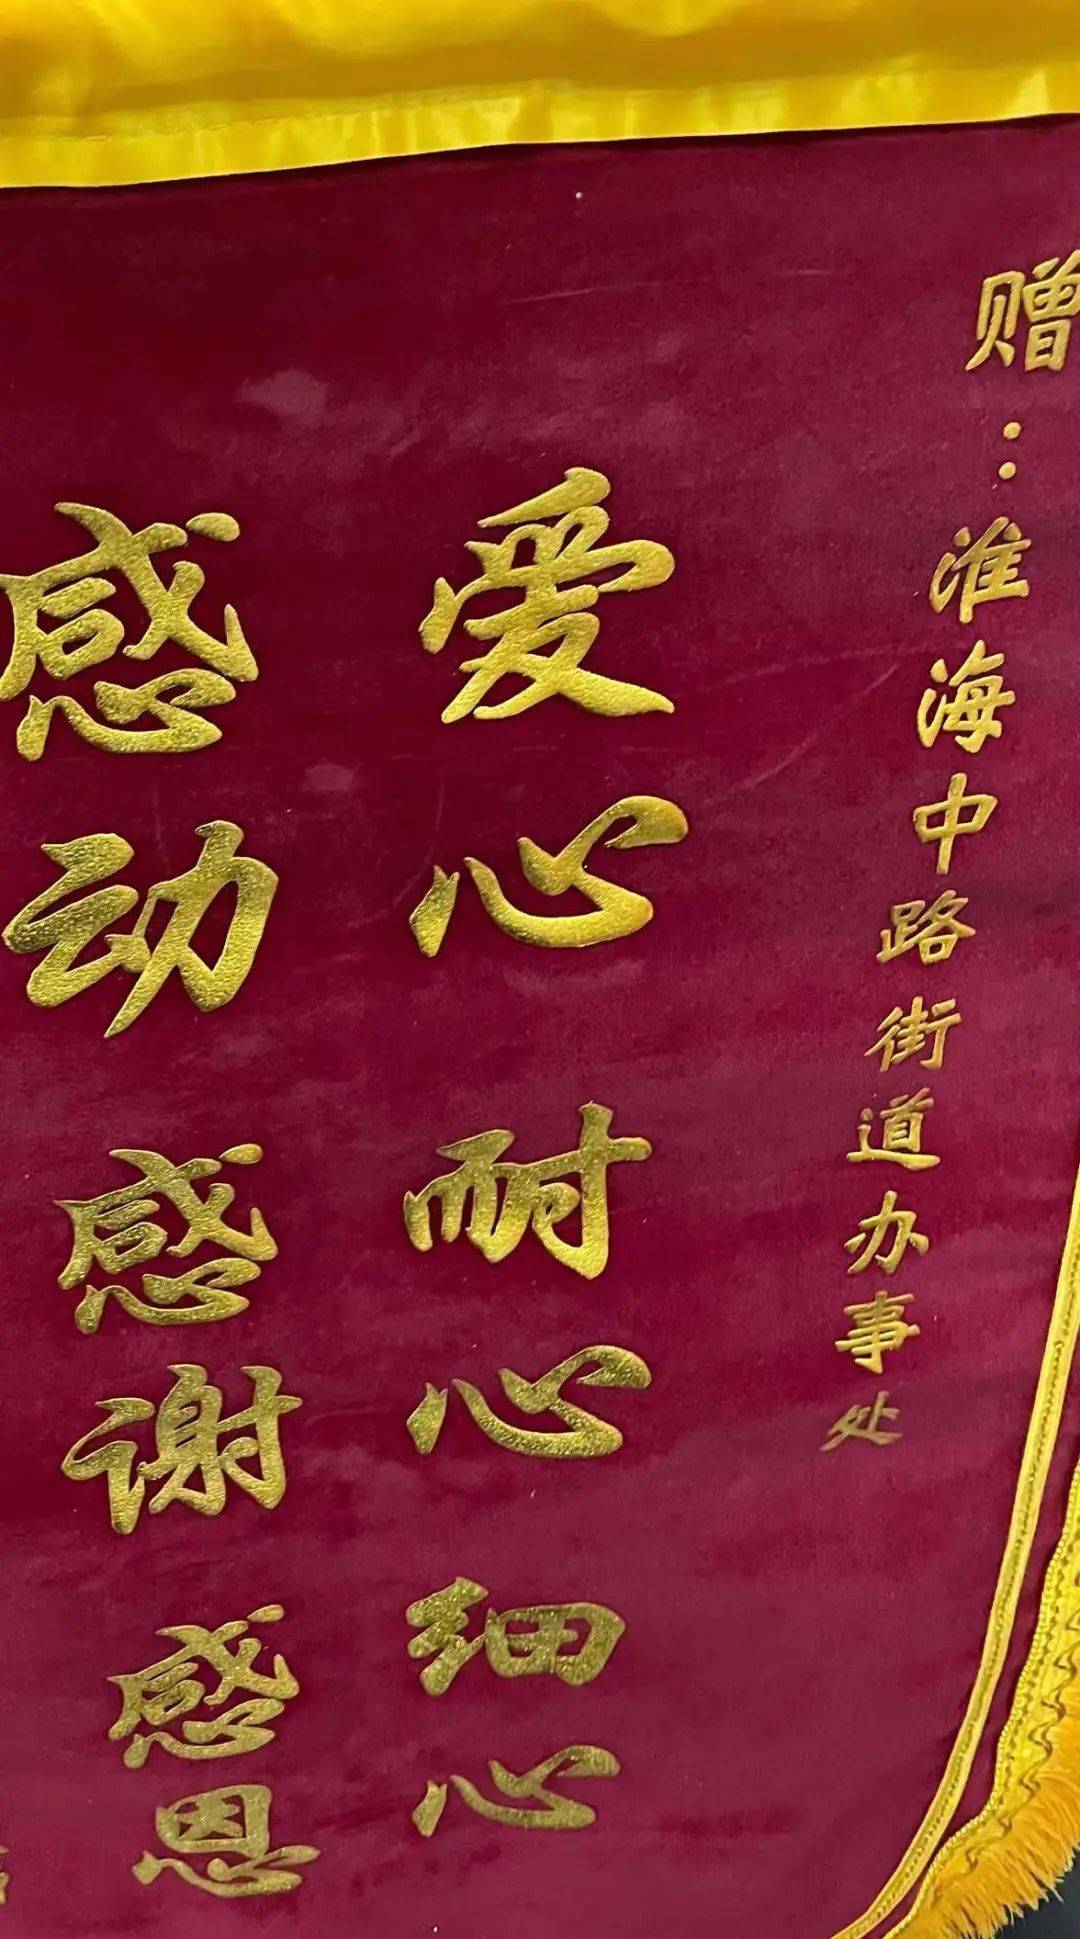 赠:淮海中路街道办事处
爱心 耐心 细心
感动 感谢 感恩